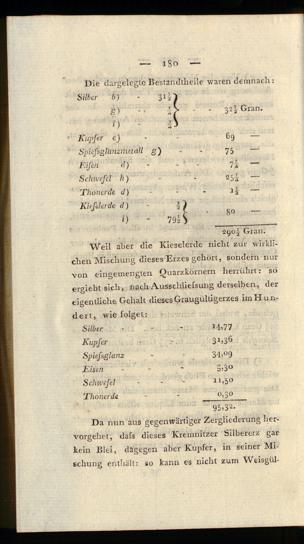 — 180 —
Die dargelegte Bestandtheile waren demnach:
Silber b) - 31½
g) - ¼ - - 32½ Gran.
i) - ¾
Kupfer e) - - - 69 —
Spiefsglanzmetall g) - - 75 —
Eifen d) - - - 7¼ —
Schwefel h) - - - 25¼ —
Thonerde d) - - - 1½ —
Kiefelerde d) - ¾
- - 80 —
l) - 79¼
290½ Gran.
Weil aber die Kieselerde nicht zur wirkli-
chen Mischung dieses Erzes gehört, sondern nur
von eingemengten Quarzkörnern herrührt: so
ergiebt sich, nach Ausschliefsung derselben, der
eigentliche Gehalt dieses Graugültigerzes im Hun-
dert, wie folget:
Silber - - - 14,77
Kupfer - - - 31,36
Spiefsglanz - - 34,09
Eifen - - - 3,30
Schwefel - - - 11,50
Thonerde - - - 0,30
95,32.
Da nun aus gegenwärtiger Zergliederung her-
vorgehet, dafs dieses Kremnitzer Silbererz gar
kein Blei, dagegen aber Kupfer, in seiner Mi-
schung enthält: so kann es nicht zum Weisgül-